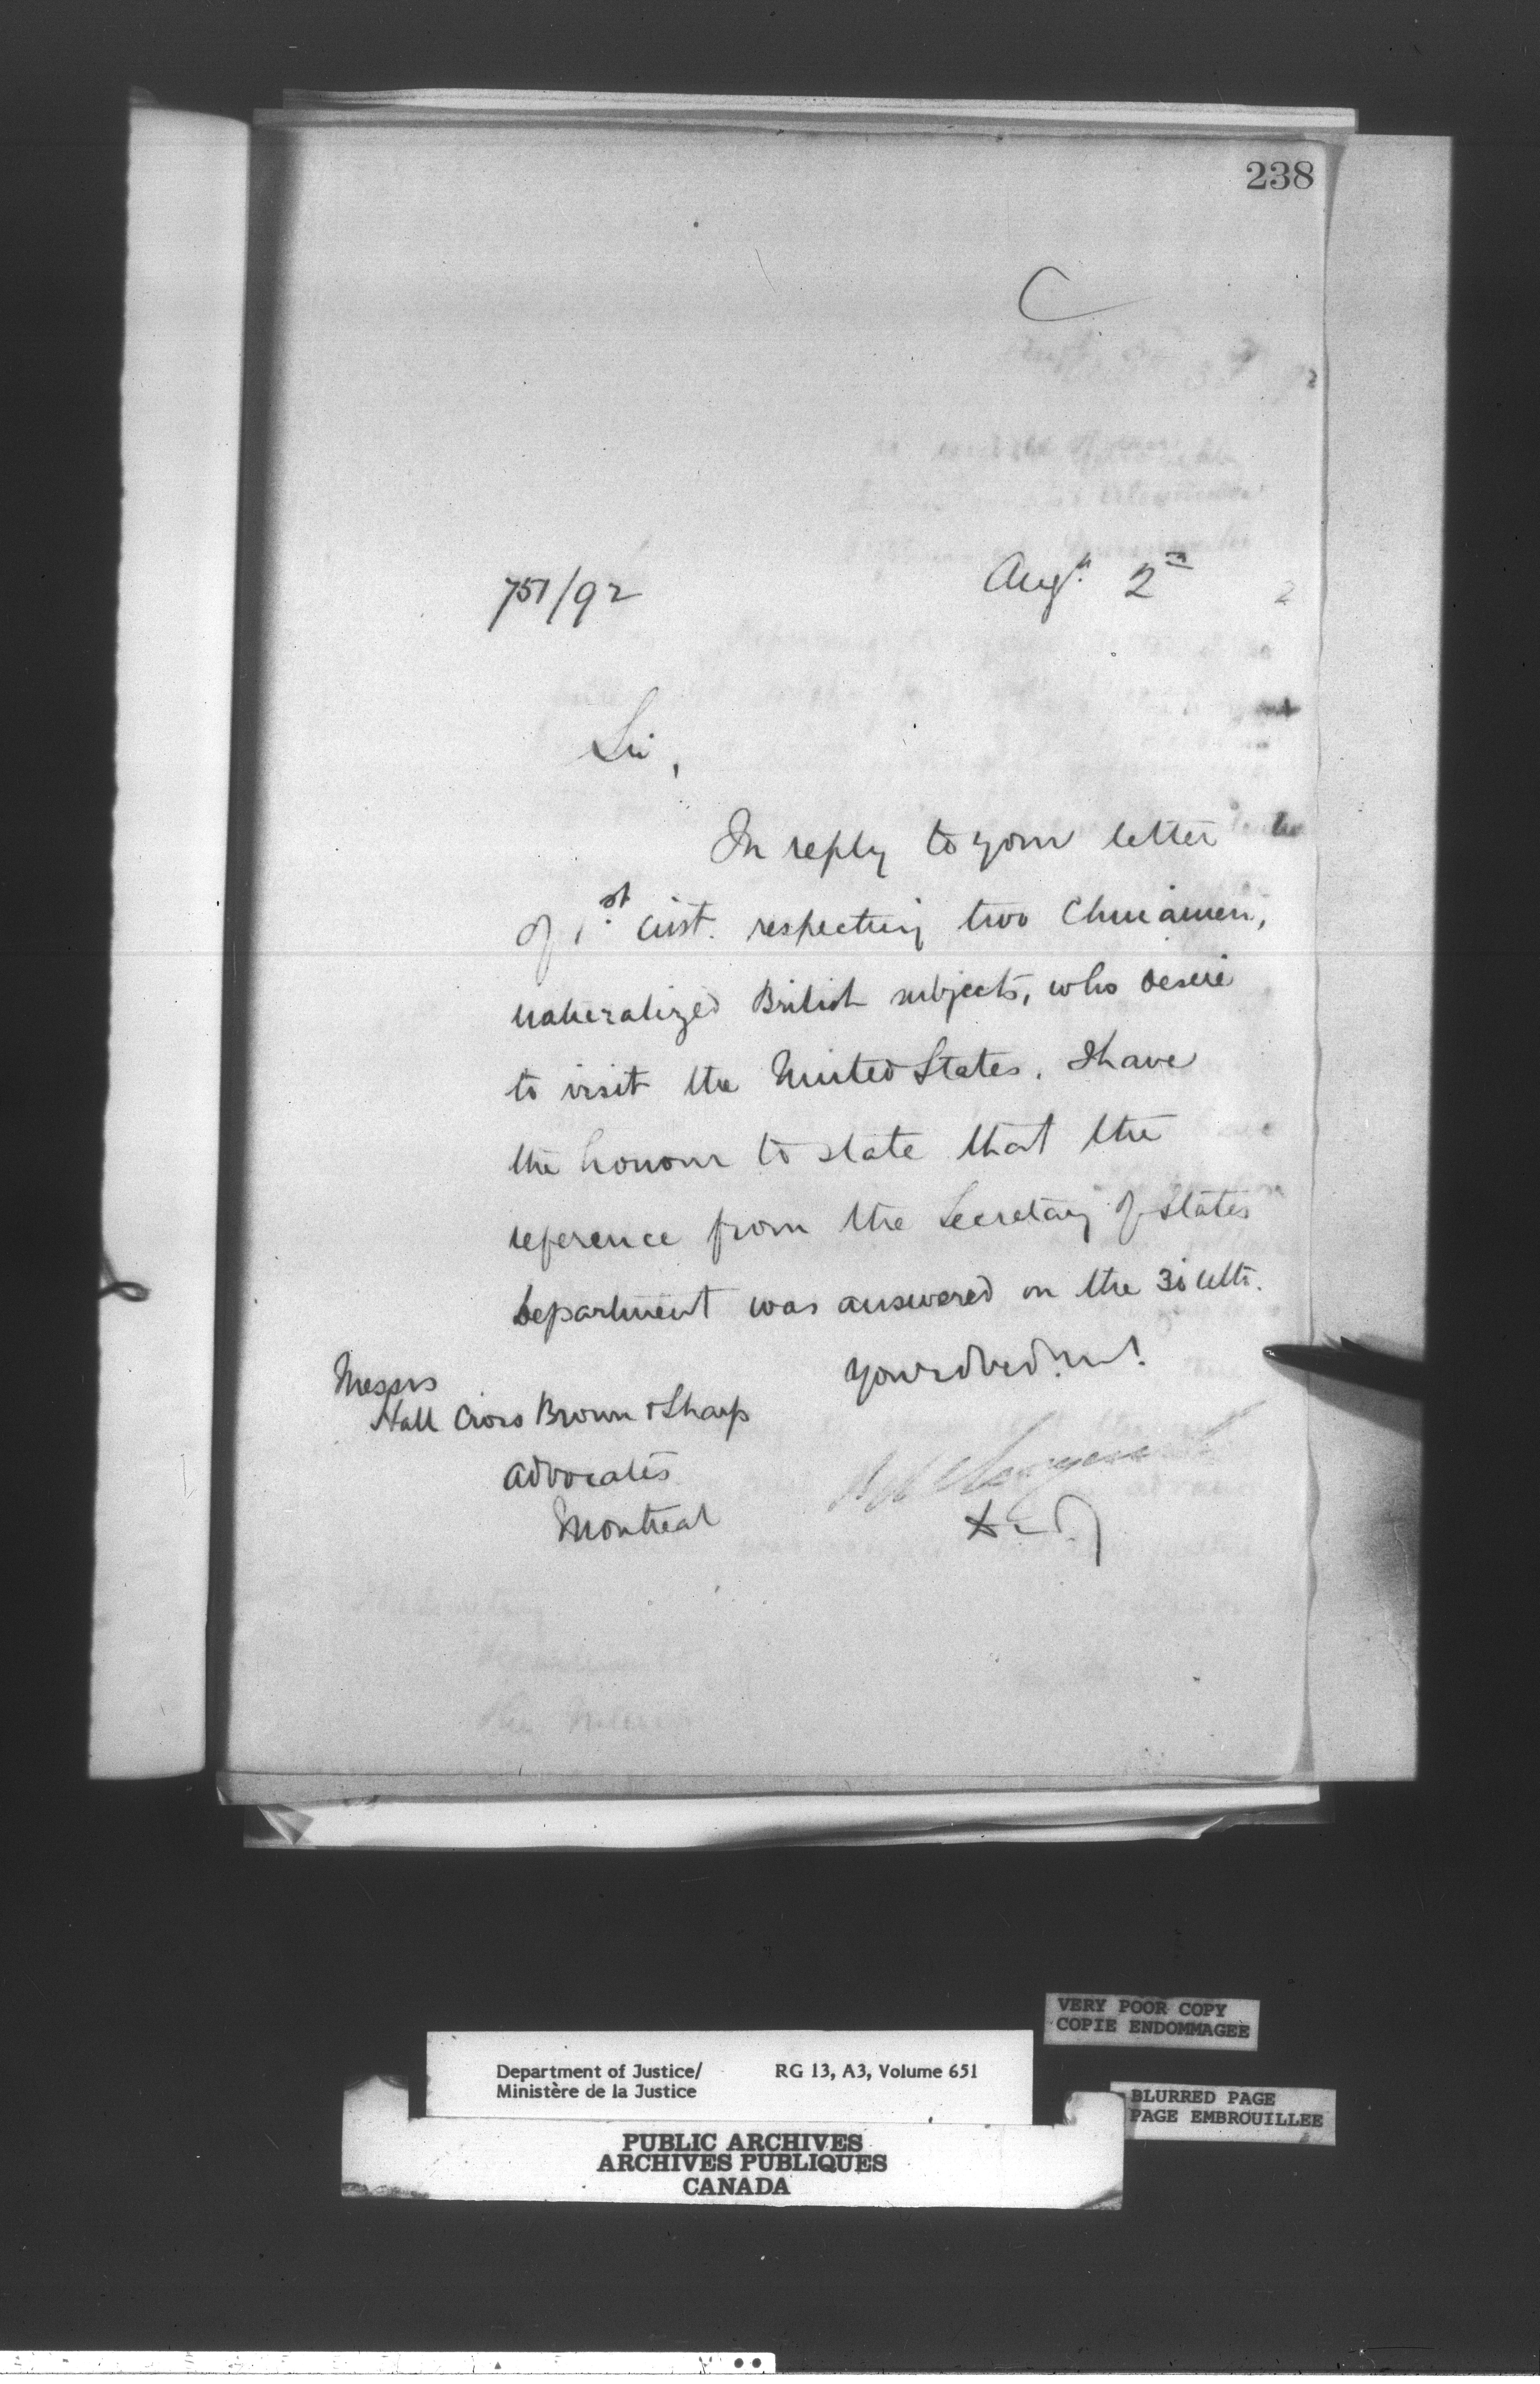 238
C
751/92 Augt. 2nd 2
Sir,
In reply to your letter
of 1st inst. respecting two Chinamen,
naturalized British subjects, who desire
to visit the United States. I have
the honour to state that the
reference from the Secretary of States
Department was answered on the 30 ulto.
Messrs
Hall Cross Brown & Sharp
Advocates
Montreal
VERY POOR COPY
COPIE ENDOMMAGEE
Department of Justice/ RG 13, A3, Volume 651
Ministère de la Justice
BLURRED PAGE
PAGE EMBROUILLEE
PUBLIC ARCHIVES
ARCHIVES PUBLIQUES
CANADA